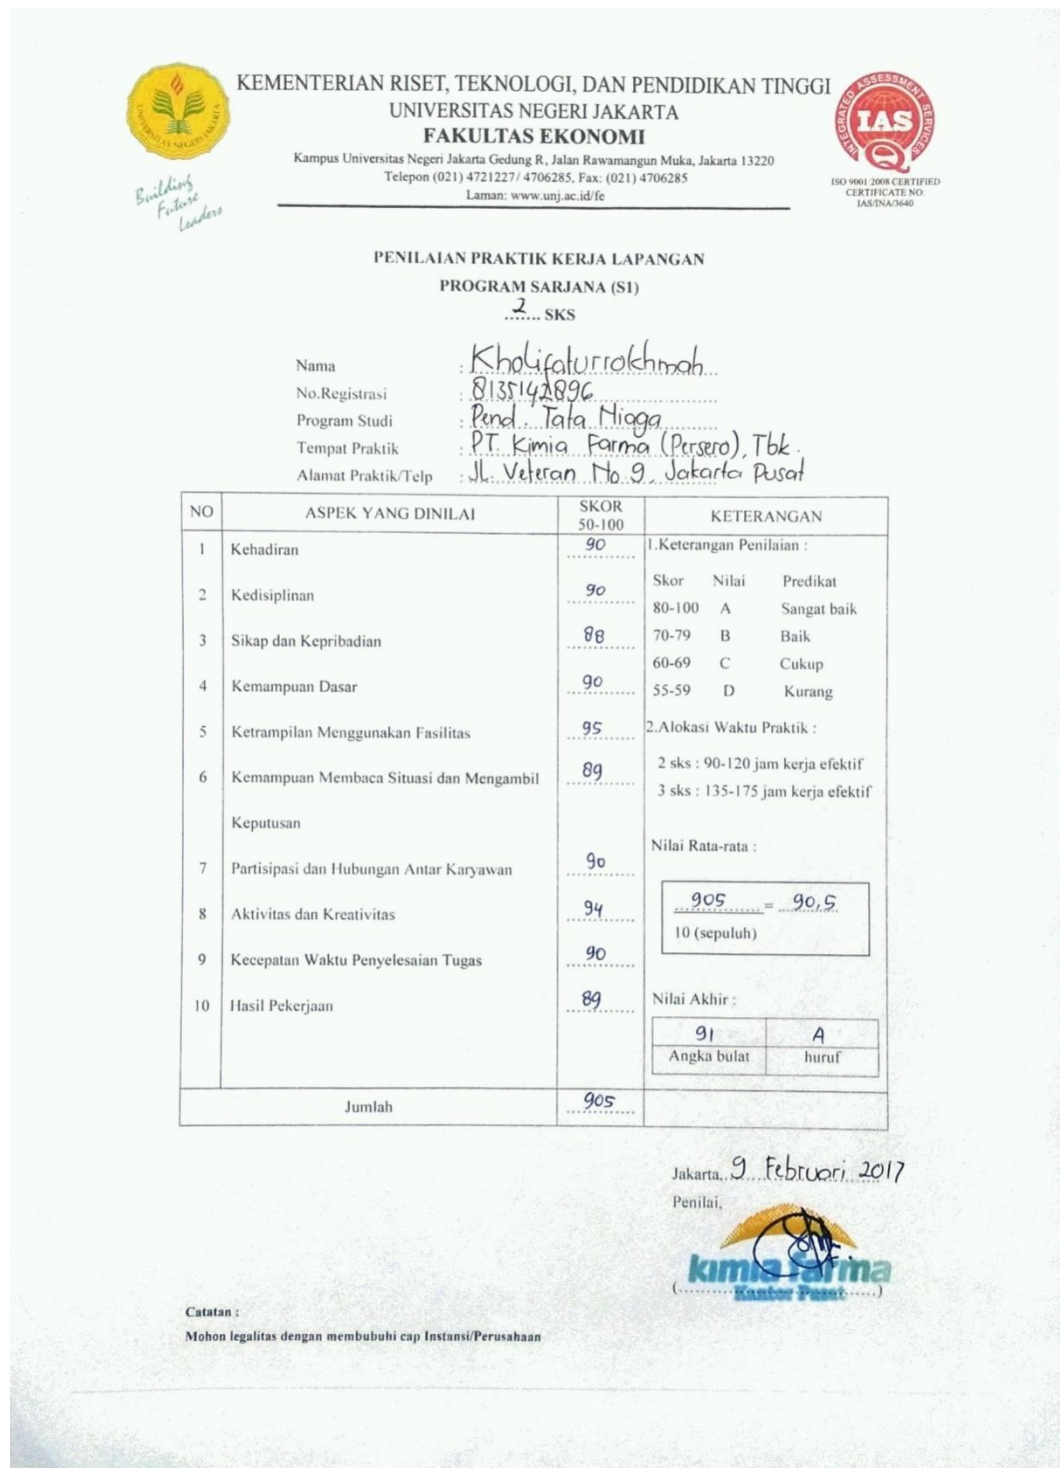 KEMENTERIAN RISET, TEKNOLOGI, DAN PENDIDIKAN TINGGI
UNIVERSITAS NEGERI JAKARTA
FAKULTAS EKONOMI
Kampus Universitas Negeri Jakarta Gedung R, Jalan Rawamangun Muka, Jakarta 13220
Telepon (021) 4721227/ 4706285, Fax: (021) 4706285
Laman: www.unj.ac.id/fe
UNIVERSITAS NEGERI JAKARTA
Building
Future
Leaders
INTEGRATED ASSESSMENT SERVICES
IAS
ISO 9001 2008 CERTIFIED
CERTIFICATE NO.
IAS/INA/3640
PENILAIAN PRAKTIK KERJA LAPANGAN
PROGRAM SARJANA (S1)
2 SKS
Nama : Kholifaturrokhmah
No.Registrasi : 8135142896
Program Studi : Pend. Tata Niaga
Tempat Praktik : PT. Kimia Farma (Persero), Tbk.
Alamat Praktik/Telp : Jl. Veteran No.9, Jakarta Pusat
NO ASPEK YANG DINILAI SKOR 50-100 KETERANGAN
1 Kehadiran 90
2 Kedisiplinan 90
3 Sikap dan Kepribadian 88
4 Kemampuan Dasar 90
5 Ketrampilan Menggunakan Fasilitas 95
6 Kemampuan Membaca Situasi dan Mengambil 89
Keputusan
7 Partisipasi dan Hubungan Antar Karyawan 90
8 Aktivitas dan Kreativitas 94
9 Kecepatan Waktu Penyelesaian Tugas 90
10 Hasil Pekerjaan 89
1.Keterangan Penilaian :
Skor Nilai Predikat
80-100 A Sangat baik
70-79 B Baik
60-69 C Cukup
55-59 D Kurang
2.Alokasi Waktu Praktik :
2 sks : 90-120 jam kerja efektif
3 sks : 135-175 jam kerja efektif
Nilai Rata-rata :
905 = 90,5
10 (sepuluh)
Nilai Akhir :
91 A
Angka bulat huruf
Jumlah 905
Jakarta, 9 Februari 2017
Penilai,
kimia farma
Kantor Pusat
Catatan :
Mohon legalitas dengan membubuhi cap Instansi/Perusahaan